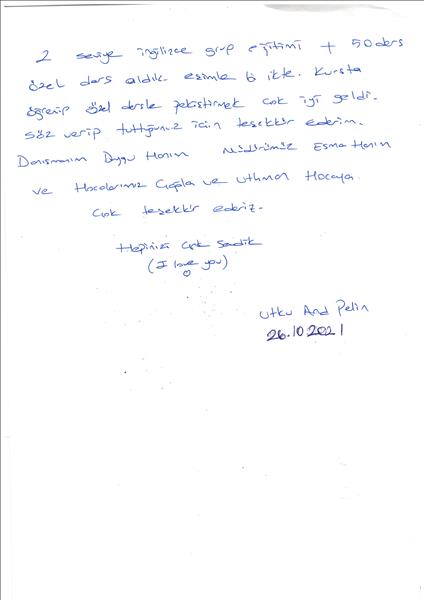 2 seviye ingilizce grup eğitimi + 50 ders
özel ders aldık eşimle birlikte. Kursta
öğrenip özel dersle pekiştirmek çok iyi geldi.
Söz verip tuttuğunuz için teşekkür ederim.
Danışmanım Duygu Hanım Müdürümüz Esma Hanım
ve Hocalarımız Çağla ve uthman Hocaya
çok teşekkür ederiz.
Hepinizi çok sevdik
(I love you)
utku And Pelin
26.10.2021